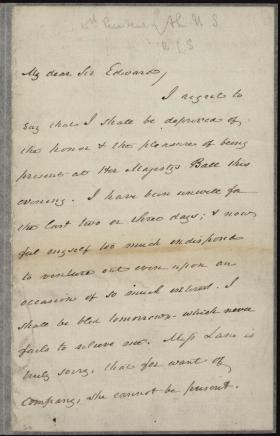 15th President of the U.S.
A L S
My dear Sir Edward,
I regret to
say that I shall be deprived of
the honor & the pleasure of being
present at Her Majesty's Ball this
evening. I have been unwell for
the last two or three days; & now
feel myself too much indisposed
to venture out even upon an
occasion of so much interest. I
shall be bled tomorrow which never
fails to relieve me. Miss Lane is
truly sorry, that for want of
company, she cannot be present.